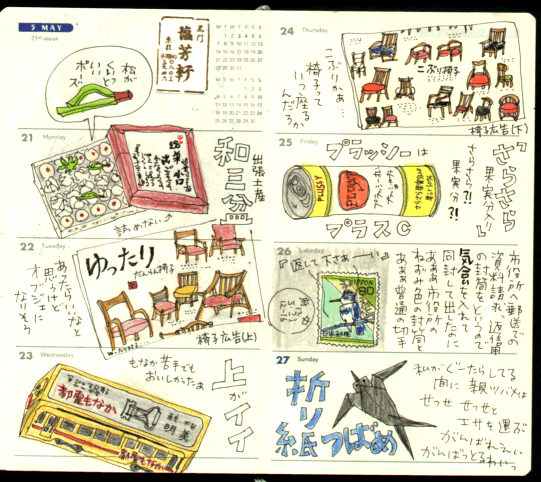 5 MAY
21st week
松が
いい
ポーズ
塩芳軒
M T W T F S S
21
Monday
和三盆
出張土産
詰めない
22
Tuesday
ゆったり
だんらん椅子
椅子広告(上)
あったらいいな
と思うけど
オブジェに
なりそう
23
Wednesday
上がイイ
もなか苦手でも
おいしかったぁ
都電もなか
明美
都電もなか
24
Thursday
こぶりかぁ…
椅子って
いつ座る
んだろか
こぶり椅子
椅子広告(下)
25
Friday
プラッシーは
プラスC
PLUSSY
『さらさら
果実分入り』
さらさら?!
果実分?!
26
Saturday
『返して下さぁーい』
NIPPON
80
市役所へ郵送での
資料請求、返信用
の封筒をというので
気合を入れて
同封して出したなに
あぁぁ市役所
ねずみ色の封筒と
あぁぁ普通の切手
27
Sunday
折り紙つばめ
私がぐーたらしてる
間に親ツバメは
せっせせっせと
エサを運ぶ
がんばれぇい
がんばっとるわいっ